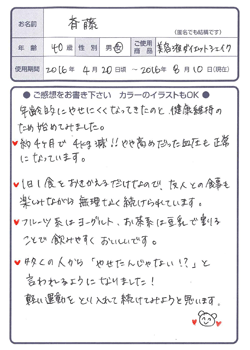 お名前 斉藤
(匿名でも結構です)
年齢 40歳 性別 男・女 ご使用商品 美容酒ダイエットシェイク
使用期間 2016年4月20日頃 ～ 2016年8月10日(現在)
● ご感想をお書き下さい カラーのイラストもOK ●
年齢的にやせにくくなってきたのと、健康維持の
ため始めてみました。
♥約4ヶ月で 4kg減!! やや高めだった血圧も正常
になっています。
♥1日1食をおきかえるだけなので、友人との食事も
楽しみながら 無理なく続けられています。
♥フルーツ系はヨーグルト、お茶系は豆乳で割る
ことで飲みやすく おいしいです。
♥多くの人から「やせたんじゃない!?」と
言われるようになりました!
軽い運動をとり入れて続けてみようと思います。